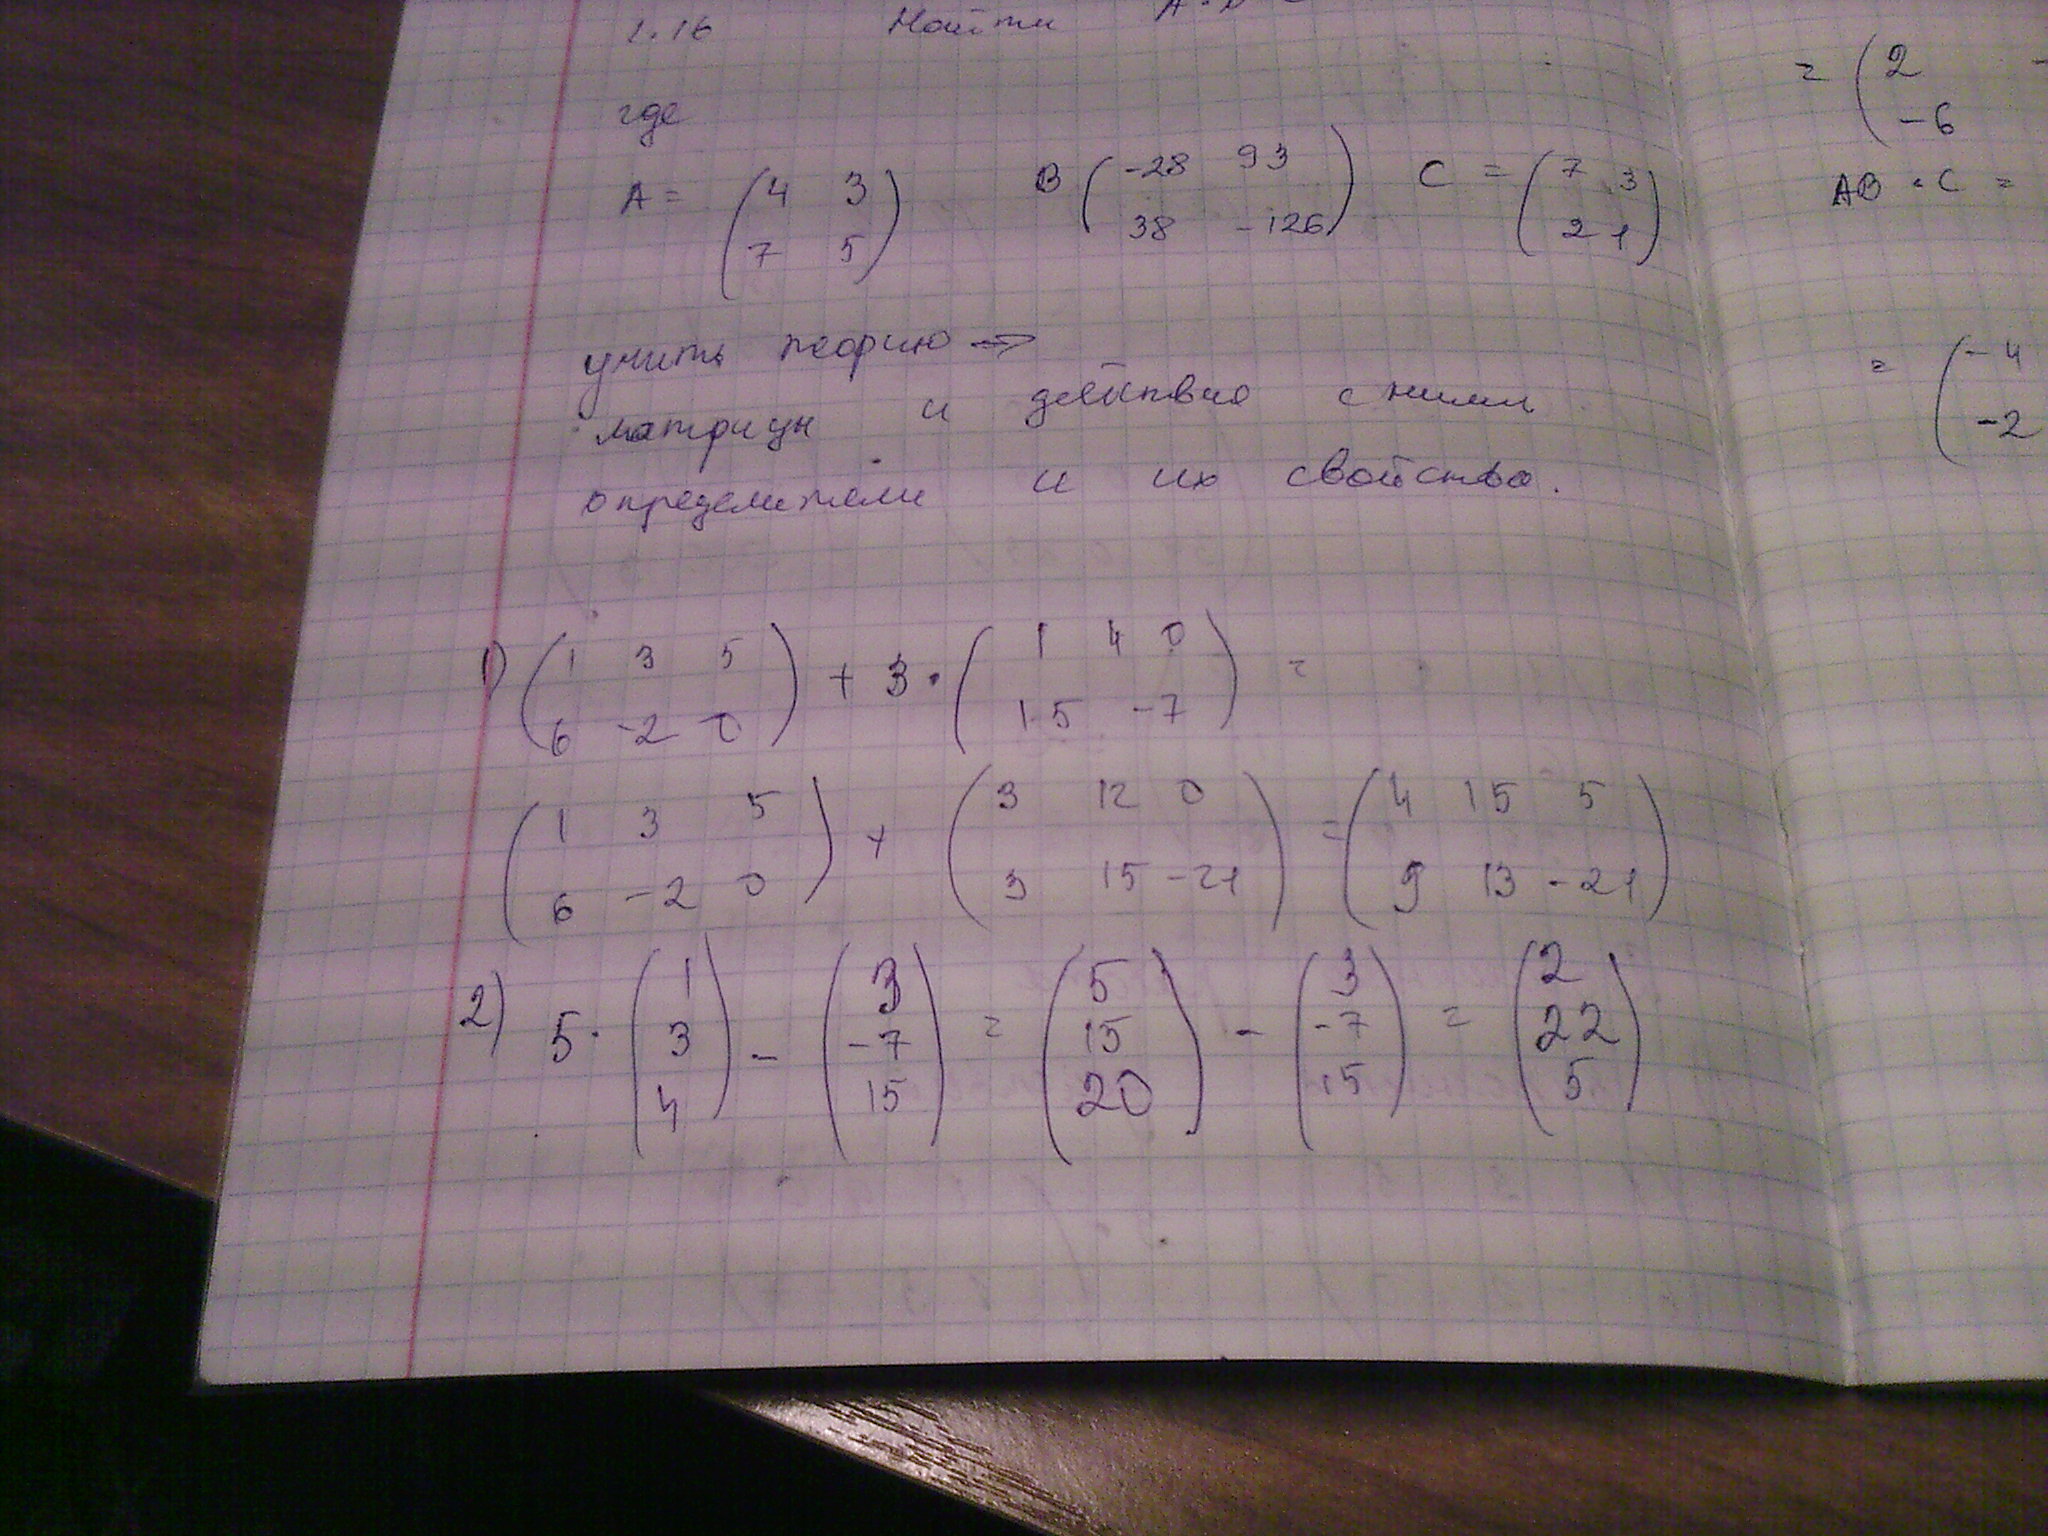 1.16 Найти
где
A = (4 3
7 5) B (-28 93
38 -126) C = (7 3
2 1)
учить теорию →
матрицы и действия с ними
определители и их свойства.
1) (1 3 5
6 -2 0) + 3 · (1 4 0
1 5 -7) =
(1 3 5
6 -2 0) + (3 12 0
3 15 -21) = (4 15 5
9 13 -21)
2) 5 · (1
3
4) - (3
-7
15) = (5
15
20) - (3
-7
15) = (2
22
5)
= (2
-6
AB · C =
= (-4
-2